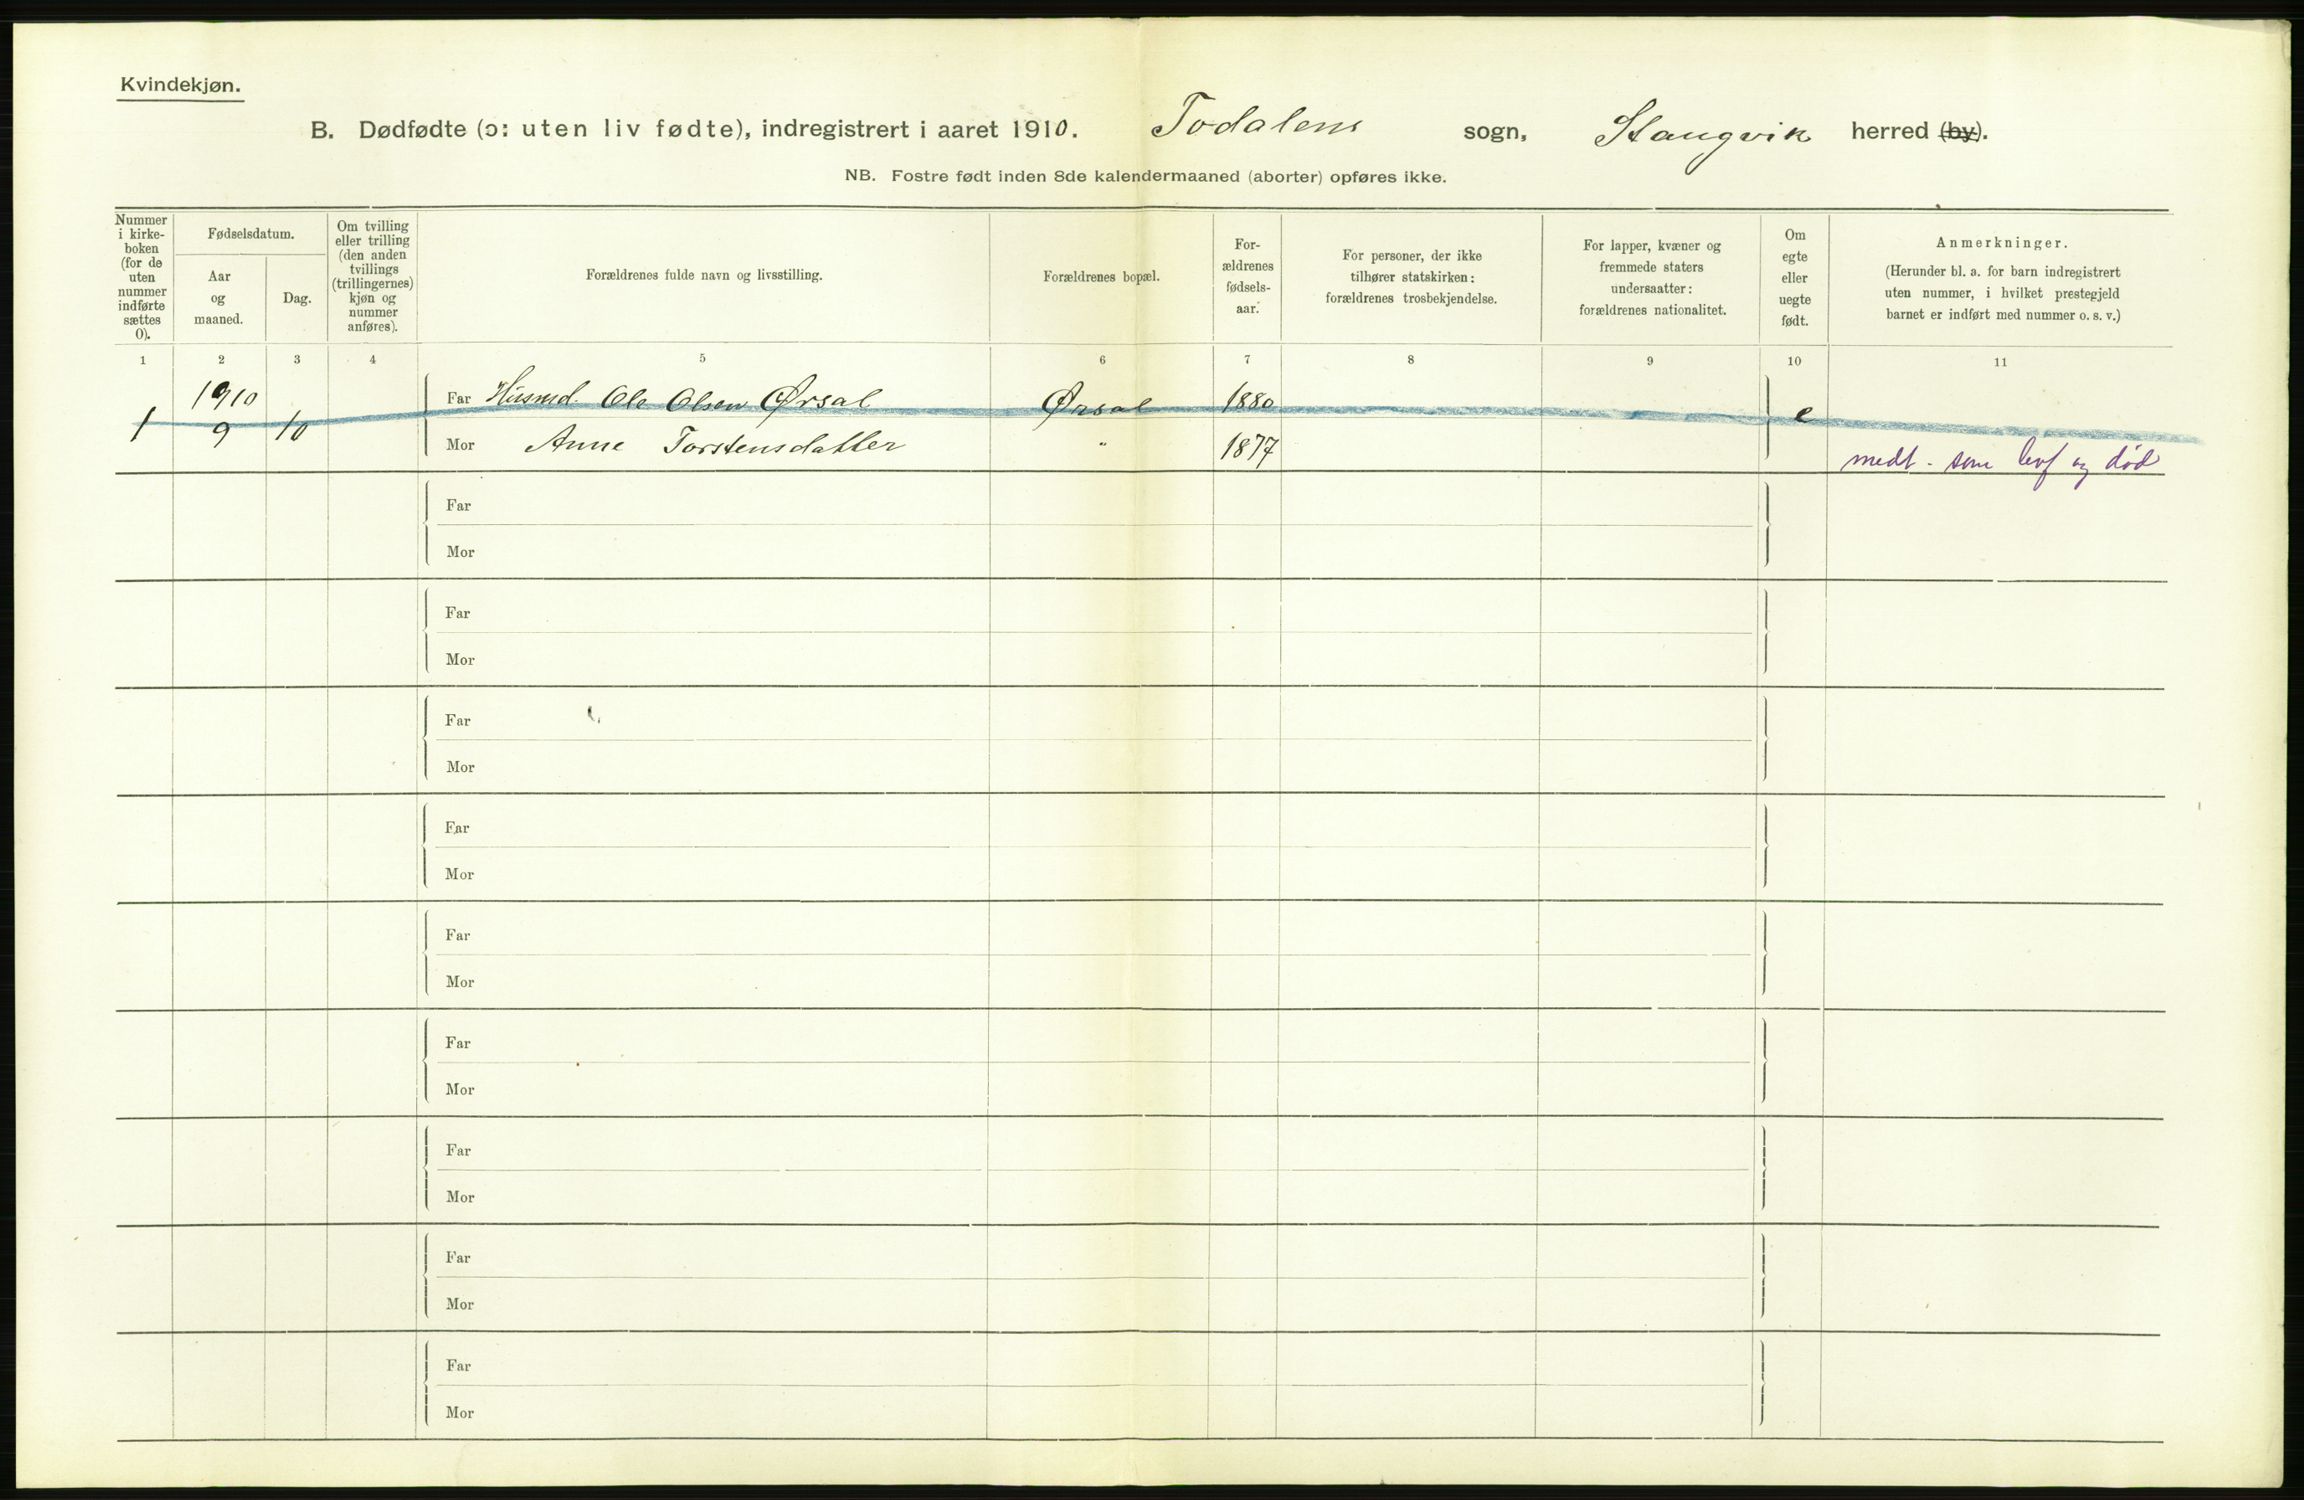 Kvindekjøn.
B. Dødfødte (ɔ: uten liv fødte), indregistrert i aaret 1910. Todalens sogn, Stangvik herred (by).
NB. Fostre født inden 8de kalendermaaned (aborter) opføres ikke.
Nummer
i kirke-
boken
(for de
uten
nummer
indførte
sættes
0).
Fødselsdatum.
Aar
og
maaned.
Dag.
Om tvilling
eller trilling
(den anden
tvillings
(trillingernes)
kjøn og
nummer
anføres).
Forældrenes fulde navn og livsstilling.
Forældrenes bopæl.
For-
ældrenes
fødsels-
aar.
For personer, der ikke
tilhører statskirken:
forældrenes trosbekjendelse.
For lapper, kvæner og
fremmede staters
undersaatter:
forældrenes nationalitet.
Om
egte
eller
uegte
født.
Anmerkninger.
(Herunder bl. a. for barn indregistrert
uten nummer, i hvilket prestegjeld
barnet er indført med nummer o. s. v.)
1 2 3 4 5 6 7 8 9 10 11
1910 Far Husmd. Ole Olsen Ørsal Ørsal 1880 e
1 9 10 Mor Anne Torstensdatter " 1877
medt - som levf og død
Far
Mor
Far
Mor
Far
Mor
Far
Mor
Far
Mor
Far
Mor
Far
Mor
Far
Mor
Far
Mor